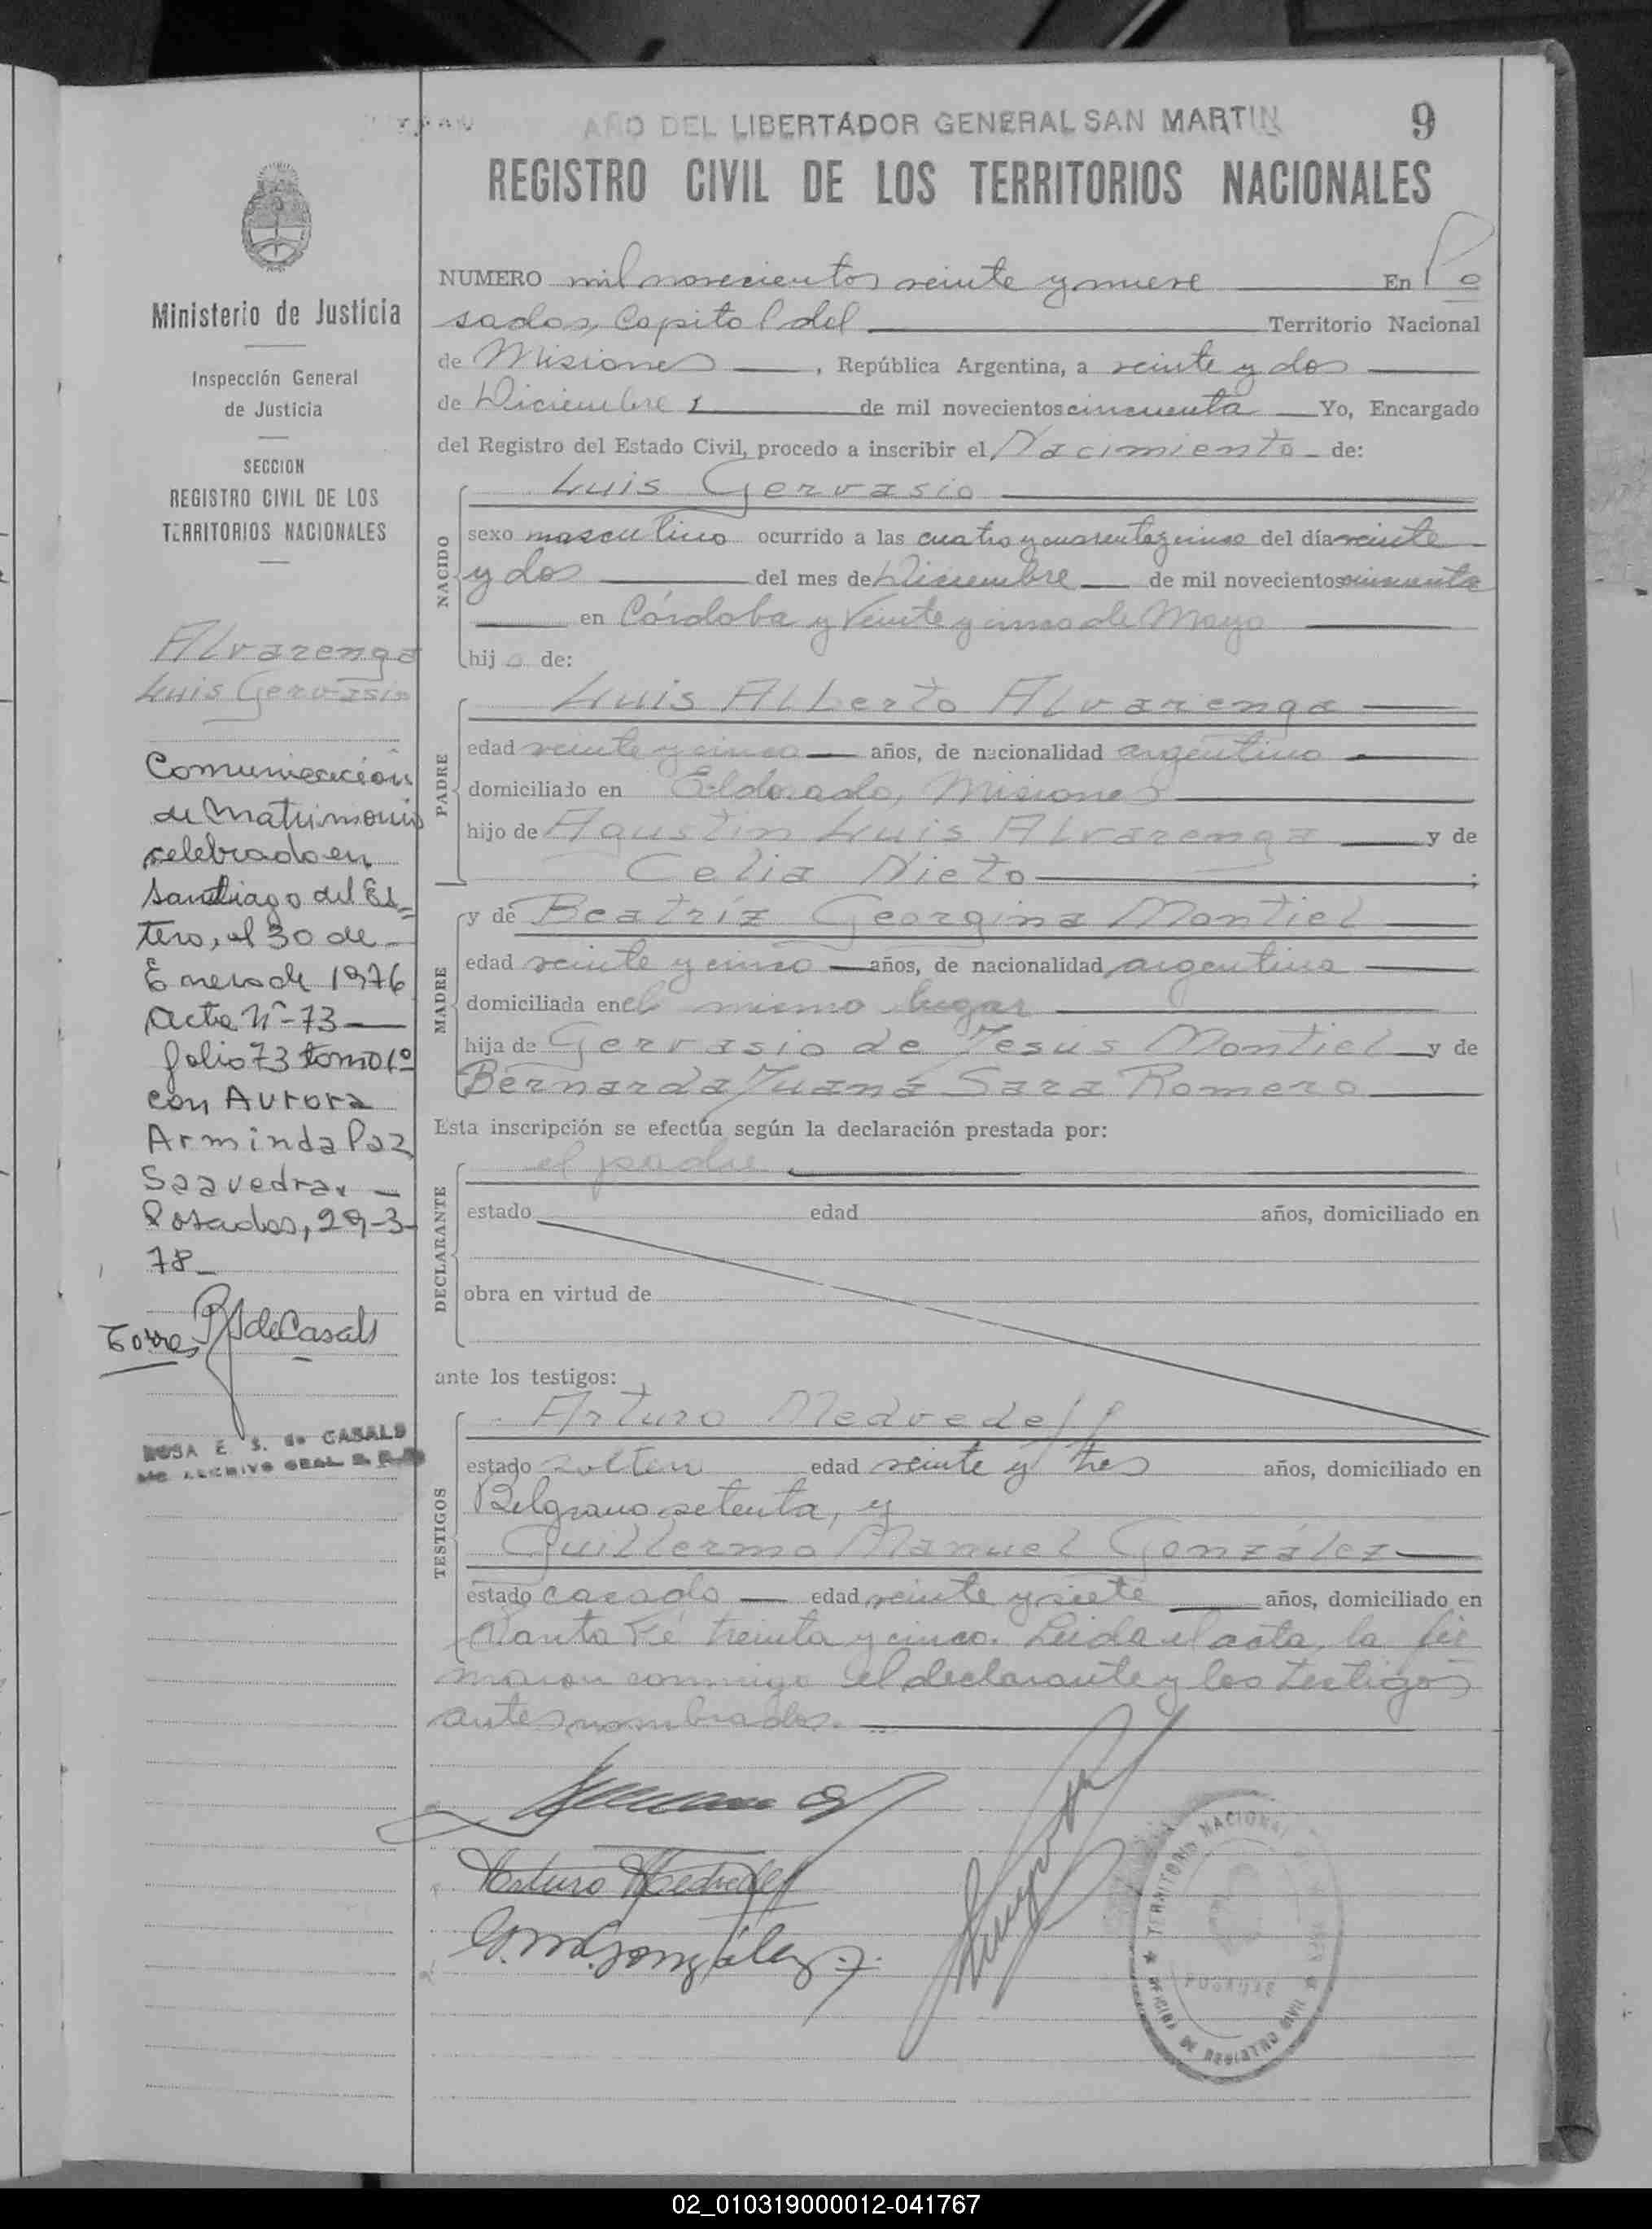 AÑO DEL LIBERTADOR GENERAL SAN MARTIN
9
REGISTRO CIVIL DE LOS TERRITORIOS NACIONALES
Ministerio de Justicia
Inspección General
de Justicia
SECCION
REGISTRO CIVIL DE LOS
TERRITORIOS NACIONALES
Alvarenga
Luis Gervasio
Comunicación
de Matrimonio
celebrado en
Santiago del Es-
tero, el 30 de
Enero de 1976
Acta Nº 73
folio 73 tomo 1º
con Aurora
Arminda Paz
Saavedra. -
Posadas, 29-3-
78_
Torres
R S de Casals
ROSA E. S. de CASALS
NUMERO mil novecientos veinte y nueve En Po
sadas, Capital del Territorio Nacional
de Misiones, República Argentina, a veinte y dos
de Diciembre de mil novecientos cincuenta Yo, Encargado
del Registro del Estado Civil, procedo a inscribir el Nacimiento de:
NACIDO
Luis Gervasio
sexo masculino ocurrido a las cuatro y cuarenta y cinco del día veinte
y dos del mes de Diciembre de mil novecientos cincuenta
en Córdoba y Veinte y cinco de Mayo
hijo de:
PADRE
Luis Alberto Alvarenga
edad veinte y cinco años, de nacionalidad argentino
domiciliado en Eldorado, Misiones
hijo de Agustin Luis Alvarenga y de
Celia Nieto;
MADRE
y de Beatríz Georgina Montiel
edad veinte y cinco años, de nacionalidad argentina
domiciliada en el mismo lugar
hija de Gervasio de Jesus Montiel y de
Bernarda Juana Sara Romero
Esta inscripción se efectúa según la declaración prestada por:
DECLARANTE
el padre
estado edad años, domiciliado en
obra en virtud de
ante los testigos:
TESTIGOS
Arturo Medvedeff
estado soltero edad veinte y tres años, domiciliado en
Belgrano setenta, y
Guillermo Manuel González
estado casado edad veinte y siete años, domiciliado en
Santa Fé treinta y cinco. Leida el acta, la fir
maron conmigo el declarante y los testigos
antes nombrados.
Arturo Medvedeff
G. M. González
TERRITORIO NACIONAL
POSADAS
OFICINA DE REGISTRO CIVIL
02_010319000012-041767